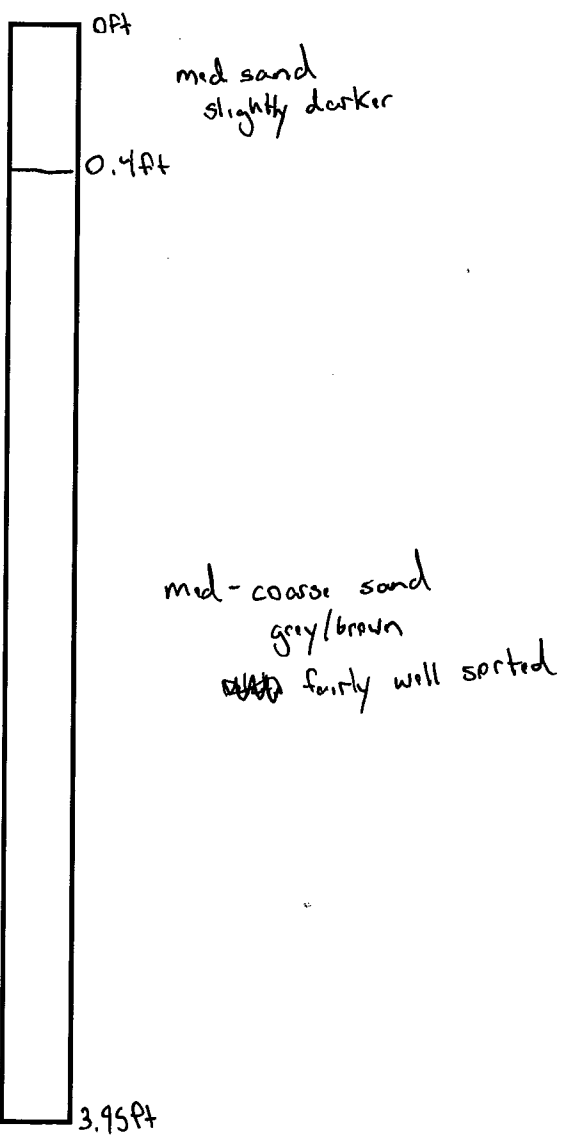 0ft
med sand
slightly darker
0.4ft
med-coarse sand
grey/brown
fairly well sorted
3.95ft